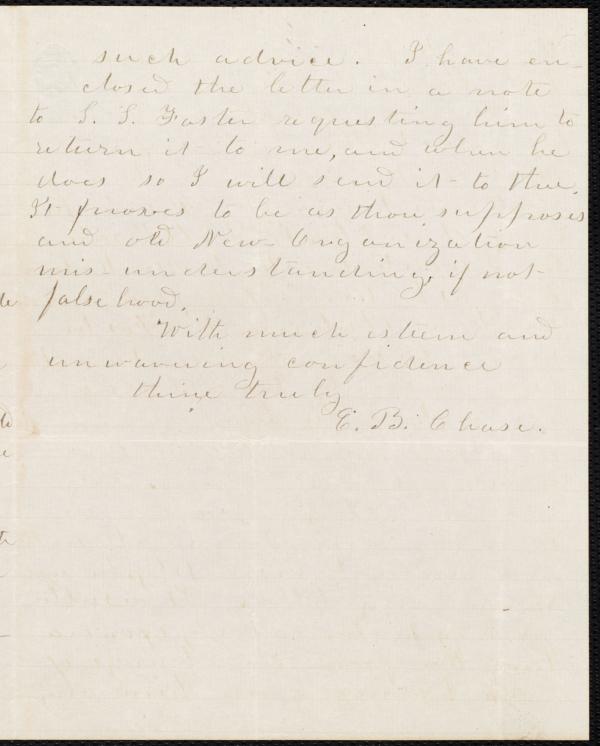 such advice. I have en-
closed the letter in a note
to S. S. Foster requesting him to
return it to me, and when he
does so I will send it to thee.
It proves to be as thou supposes
and old New-Organization
mis-understanding, if not
falsehood.
With much esteem and
unwavering confidence
thine truly
E. B. Chase.